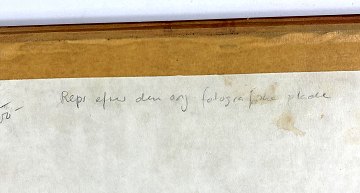 Repr efter den org fotografiske plade